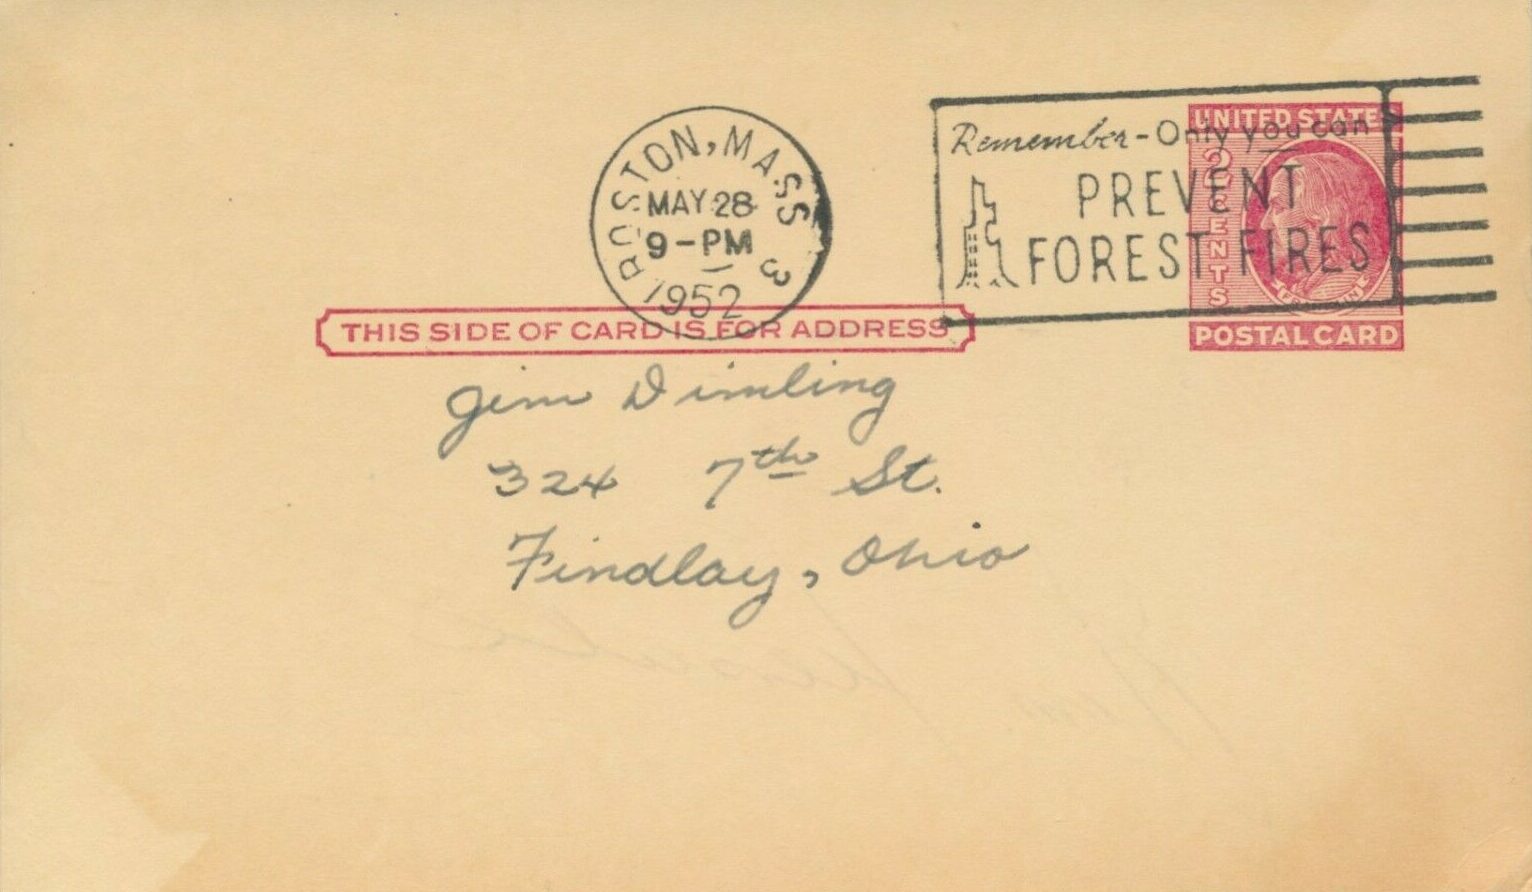 BOSTON, MASS
MAY 28
9-PM
1952
3
Remember-Only you can
PREVENT
FOREST FIRES
UNITED STATES
2 CENTS
FRANKLIN
POSTAL CARD
THIS SIDE OF CARD IS FOR ADDRESS
Jim Dimling
324 7th St.
Findlay, Ohio